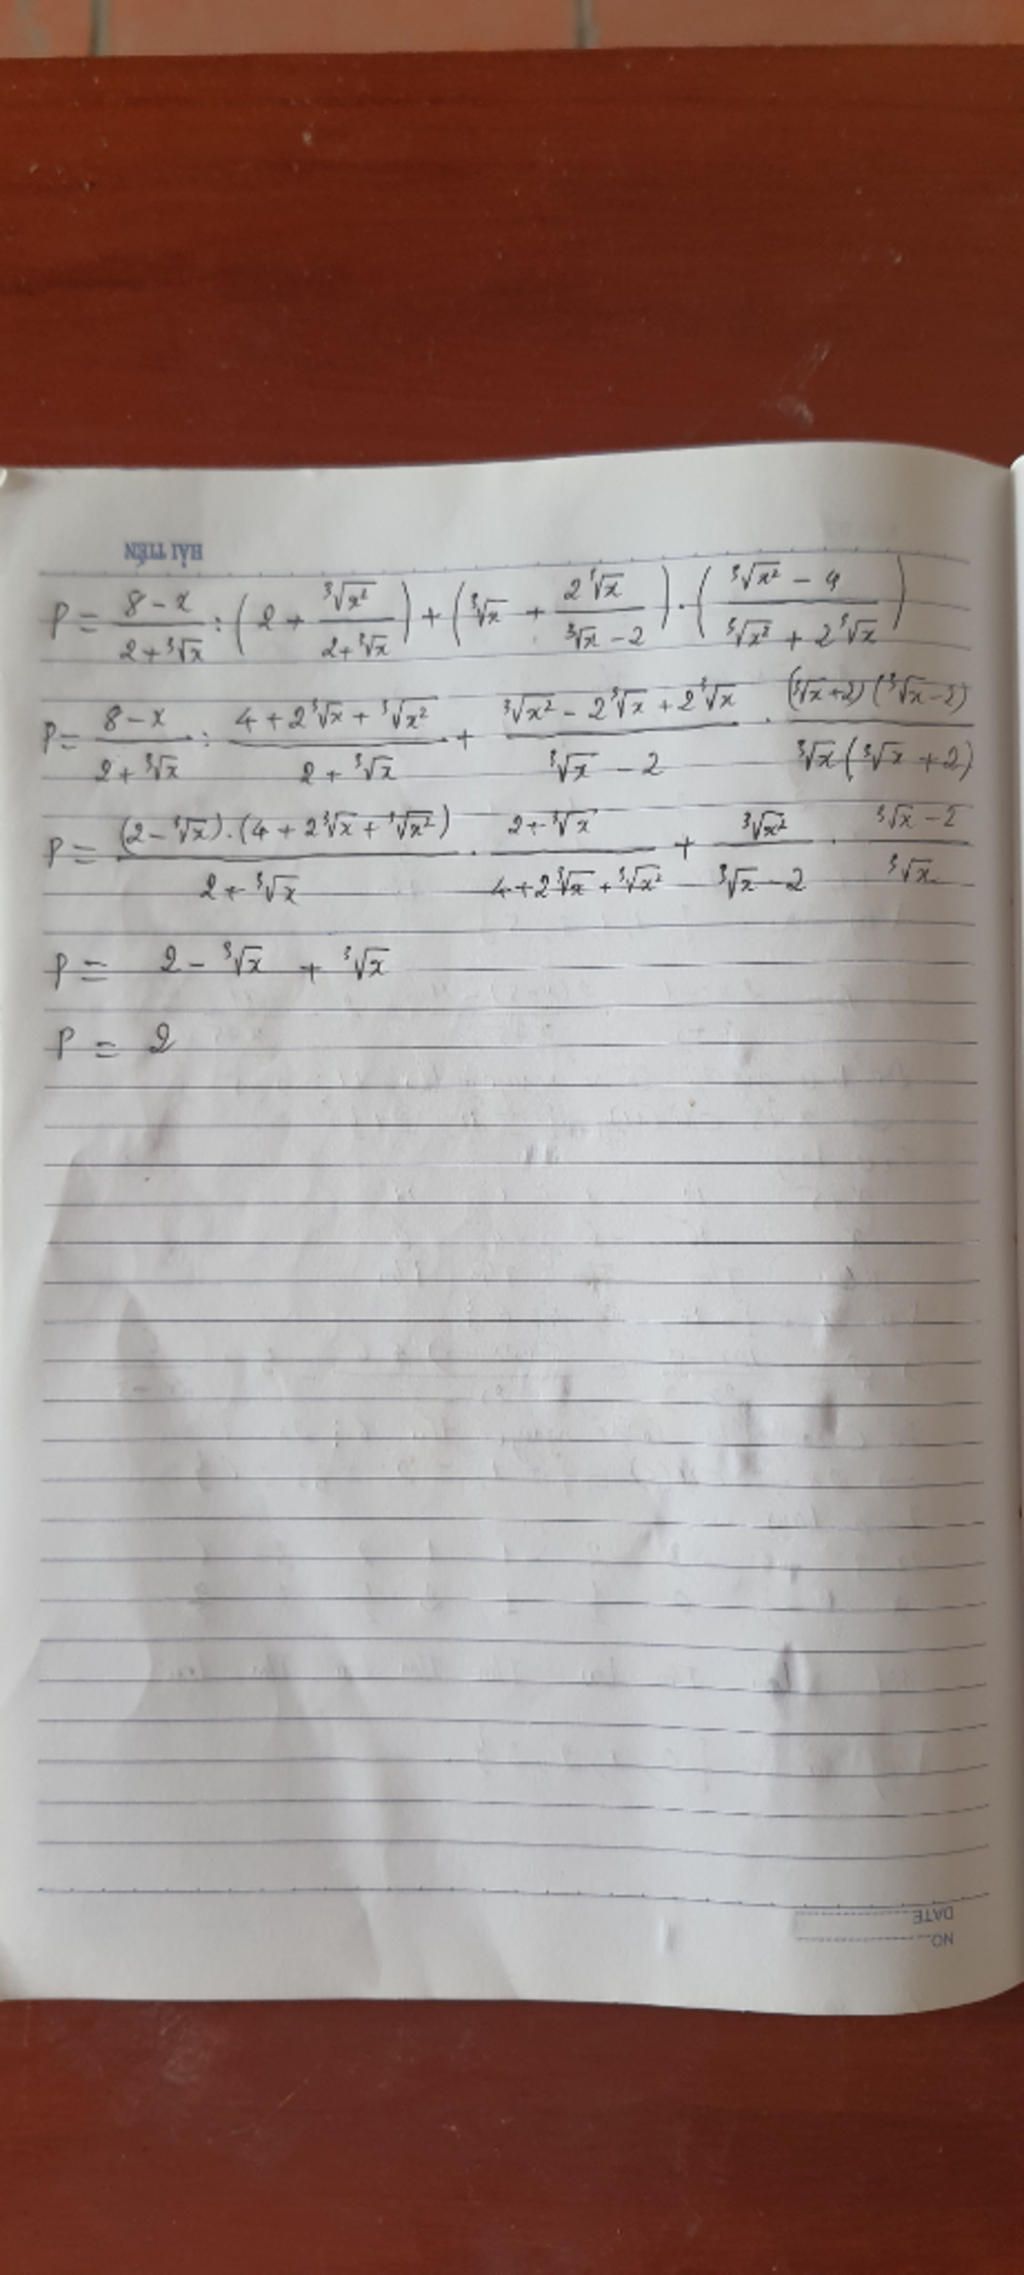 HẢI TIẾN
P = \frac{8-x}{2+\sqrt[3]{x}} : \left(2 + \frac{\sqrt[3]{x^2}}{2+\sqrt[3]{x}}\right) + \left(\sqrt[3]{x} + \frac{2\sqrt[3]{x}}{\sqrt[3]{x}-2}\right) . \left(\frac{\sqrt[3]{x^2}-4}{\sqrt[3]{x^2}+2\sqrt[3]{x}}\right)
P = \frac{8-x}{2+\sqrt[3]{x}} : \frac{4+2\sqrt[3]{x}+\sqrt[3]{x^2}}{2+\sqrt[3]{x}} + \frac{\sqrt[3]{x^2}-2\sqrt[3]{x}+2\sqrt[3]{x}}{\sqrt[3]{x}-2} . \frac{(\sqrt[3]{x}+2)(\sqrt[3]{x}-2)}{\sqrt[3]{x}(\sqrt[3]{x}+2)}
P = \frac{(2-\sqrt[3]{x}).(4+2\sqrt[3]{x}+\sqrt[3]{x^2})}{2+\sqrt[3]{x}} . \frac{2+\sqrt[3]{x}}{4+2\sqrt[3]{x}+\sqrt[3]{x^2}} + \frac{\sqrt[3]{x^2}}{\sqrt[3]{x}-2} . \frac{\sqrt[3]{x}-2}{\sqrt[3]{x}}
P = 2 - \sqrt[3]{x} + \sqrt[3]{x}
P = 2
DATE
NO.